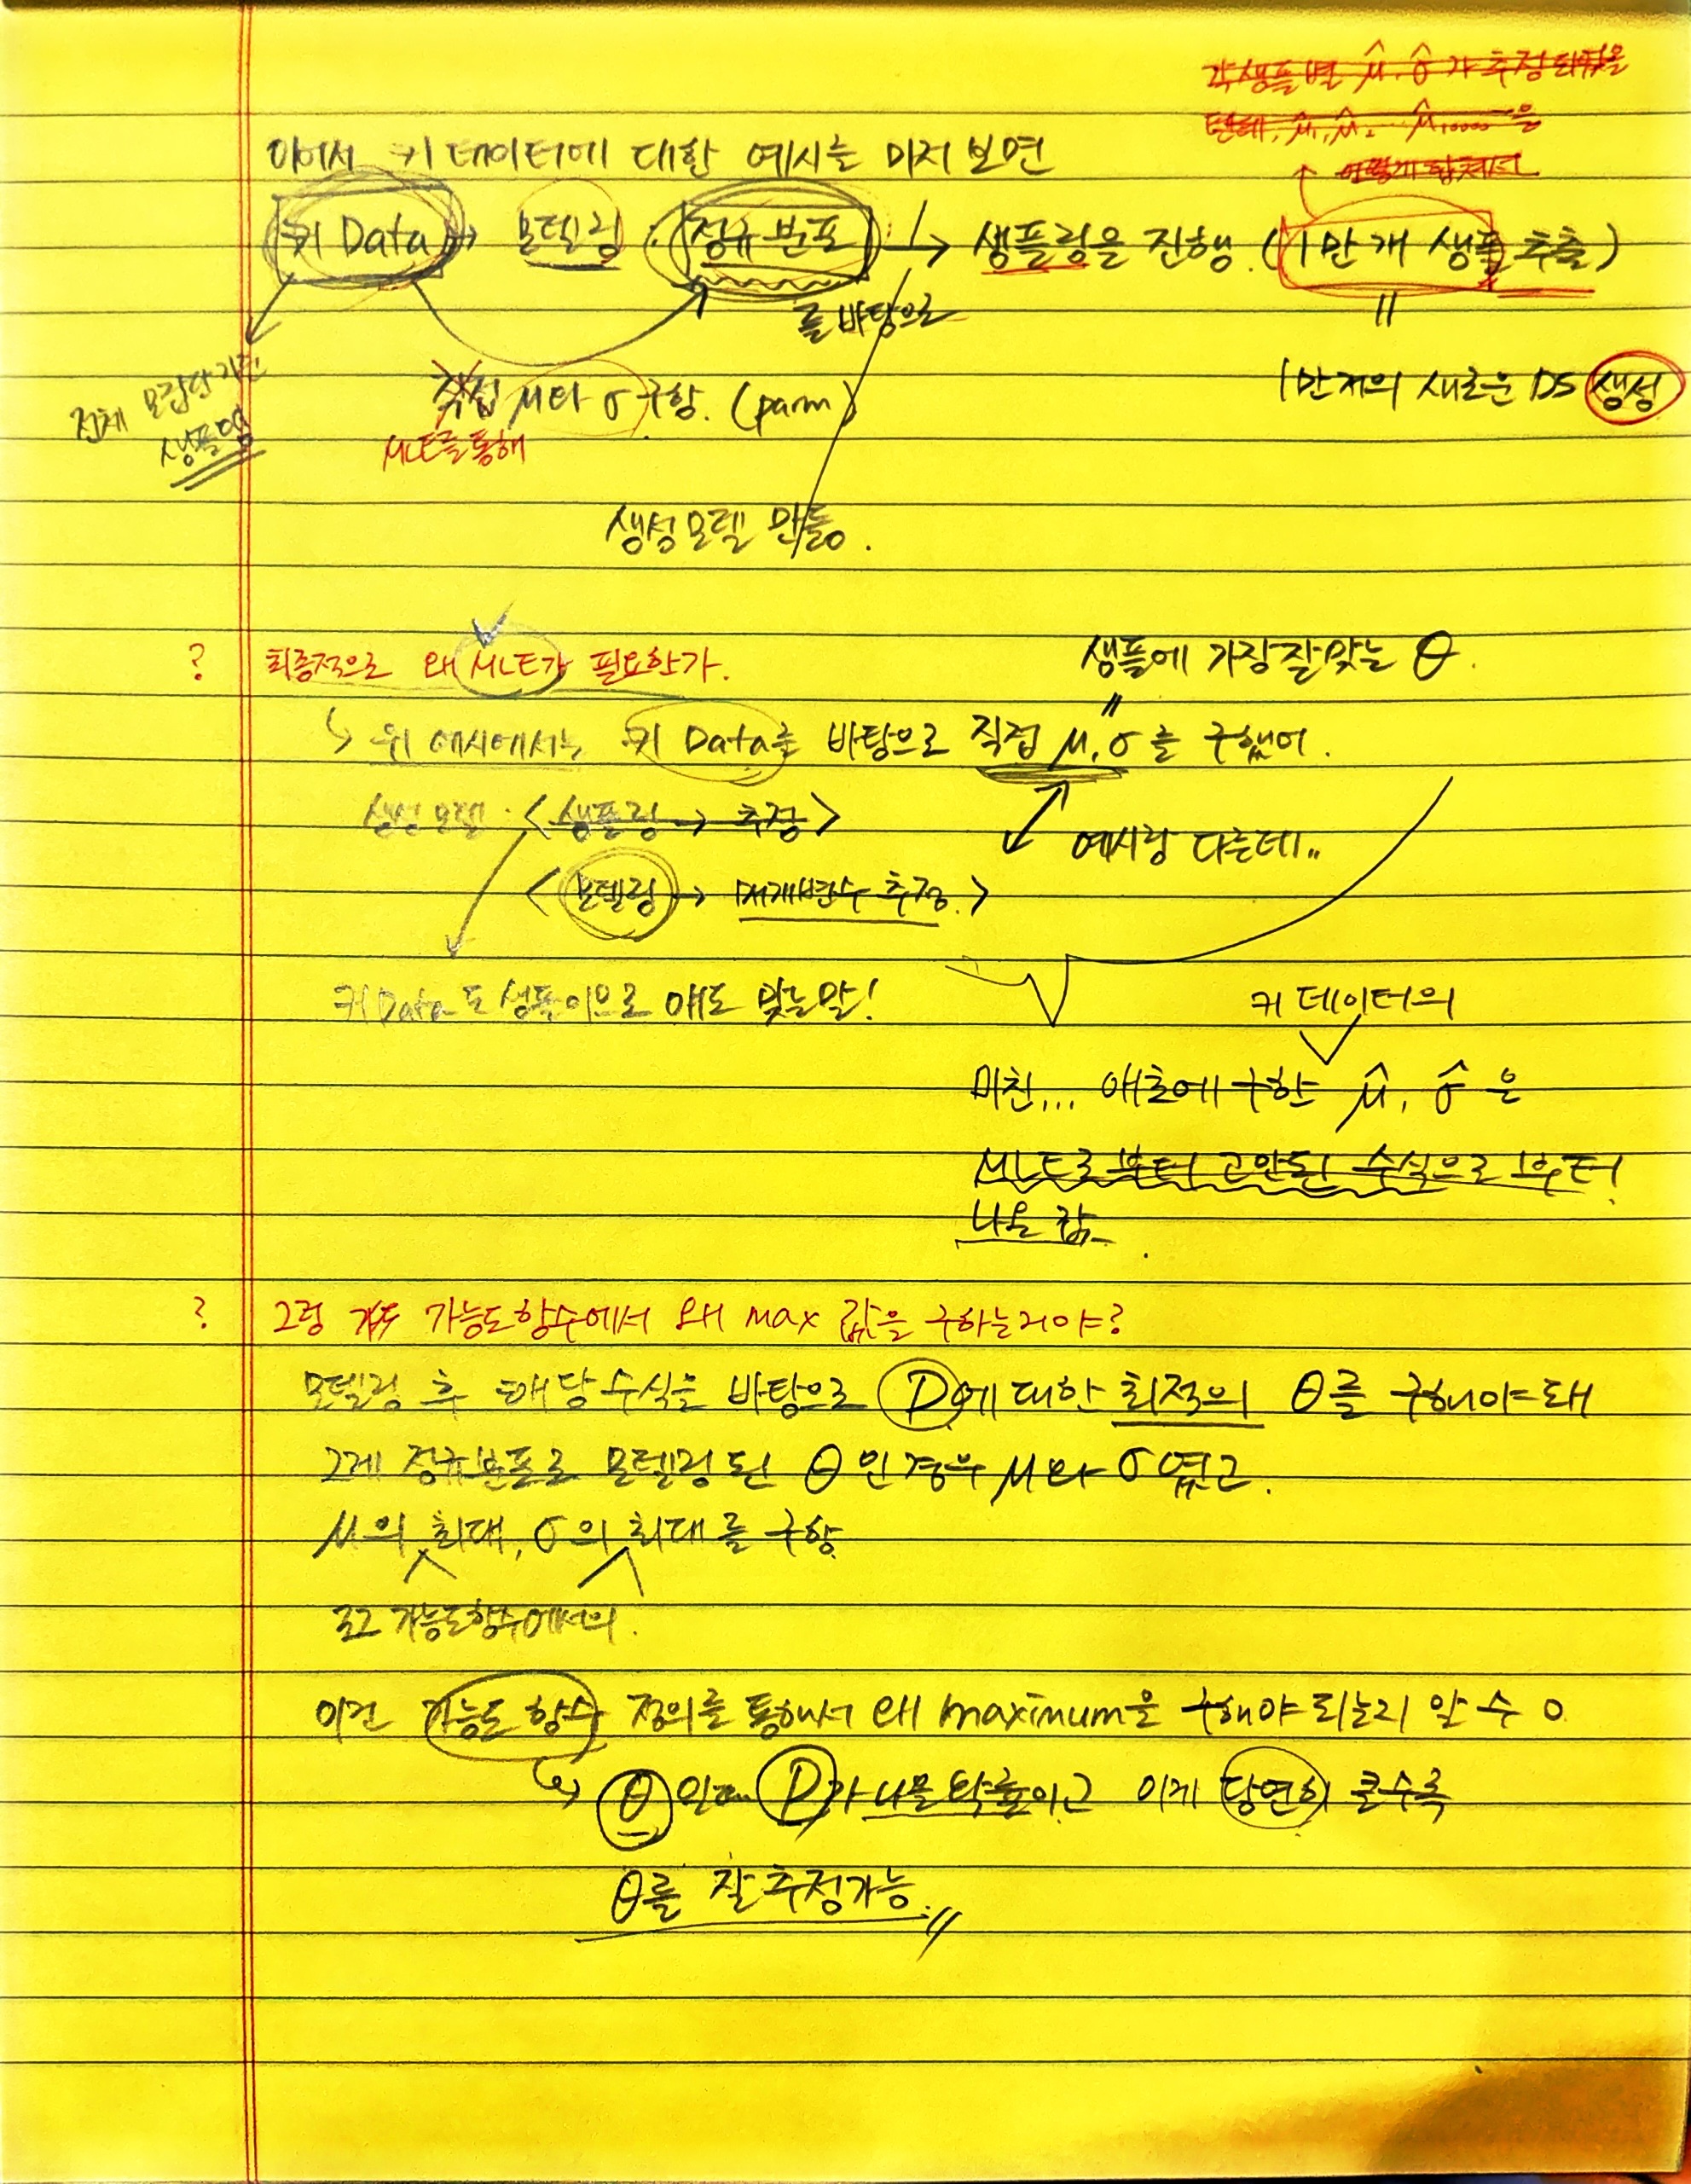 각 샘플별 μ̂, σ̂ 가 추정되었을
텐데, μ̂₁, μ̂₂ ... μ̂₁₀₀₀₀ 을
어떻게 합쳐서
이어서 키 데이터에 대한 예시를 마저 보면
키 Data → 모델링 : 정규분포 → 샘플링을 진행. (1만개 샘플 추출)
를 바탕으로
||
전체 모집단 기준
샘플임
직접 μ랑 σ 구함. (parm)
MLE를 통해
1만개의 새로운 DS 생성
생성모델 만듦.
? 최종적으로 왜 MLE가 필요한가.
샘플에 가장 잘 맞는 θ.
||
↳ 위 예시에서는 키 Data를 바탕으로 직접 μ, σ를 구했어.
생성 모델 : <샘플링 → 추정>
예시랑 다른데..
<모델링 → 매개변수 추정.>
키 Data도 샘플이므로 얘도 맞는말!
키 데이터의
미친... 애초에 구한 μ̂, σ̂ 은
MLE로부터 고안된 수식으로부터
나온 값.
? 그럼 가능도함수에서 왜 max 값을 구하는거야?
모델링 후 해당수식을 바탕으로 D에 대한 최적의 θ를 구해야돼
그게 정규분포로 모델링 된 θ인 경우 μ와 σ였고.
μ의 최대, σ의 최대를 구함
로그 가능도함수에서의.
이건 가능도 함수 정의를 통해서 왜 maximum을 구해야 되는지 알 수 O
↳ θ일때 D가 나올 확률이고 이게 당연히 클수록
θ를 잘 추정가능.